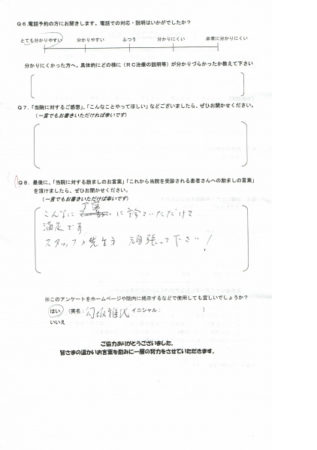 Q6.電話予約の方にお聞きします。電話での対応・説明はいかがでしたか?
とても分かりやすい　分かりやすい　ふつう　分かりにくい　非常に分かりにくい
分かりにくかった方へ、具体的にどの様に(RC治療の説明等)が分かりづらかったか教えて下さい
Q7.「当院に対するご感想」、「こんなことやってほしい」などございましたら、ぜひお聞かせください。
(一言でもお書きいただければ幸いです)
Q8.最後に、「当院に対する励ましのお言葉」「これから当院を受診される患者さんへの励ましの言葉」
を頂けましたら、ぜひお聞かせください。
(一言でもお書きいただければ幸いです)
こんなに に いただけて
満足です
スタッフ 先生 頑張って下さい!
※このアンケートをホームページや院内に掲示するなどで使用しても宜しいでしょうか?
はい (実名: イニシャル: )
いいえ
ご協力ありがとうございました。
皆さまの温かいお言葉を励みに一層の努力をさせていただきます。